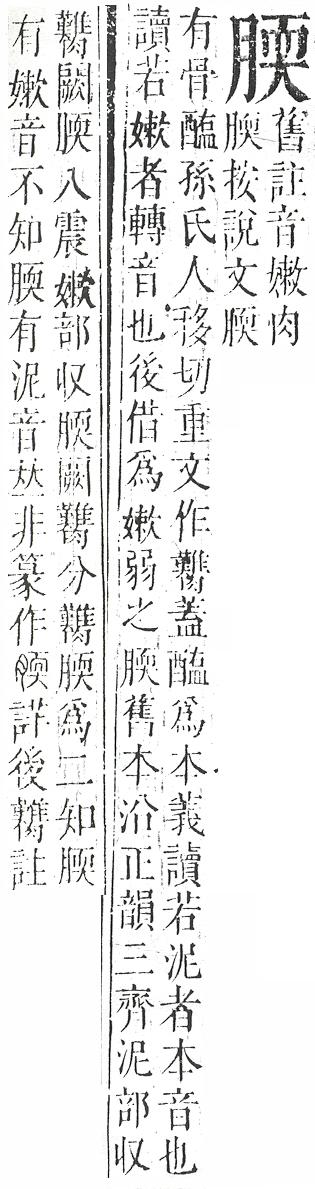 腝
舊註音嫩肉
腝按說文腝
有骨醢孫氏人移切重文作𩱙蓋醢爲本義讀若泥者本音也
讀若嫩者轉音也後借爲嫩弱之腝舊本沿正韻三齊泥部收
闕腝八震嫩部收腝闕分腝爲二知腝
有嫩音不知腝有泥音𠀤非篆作腝詳後註